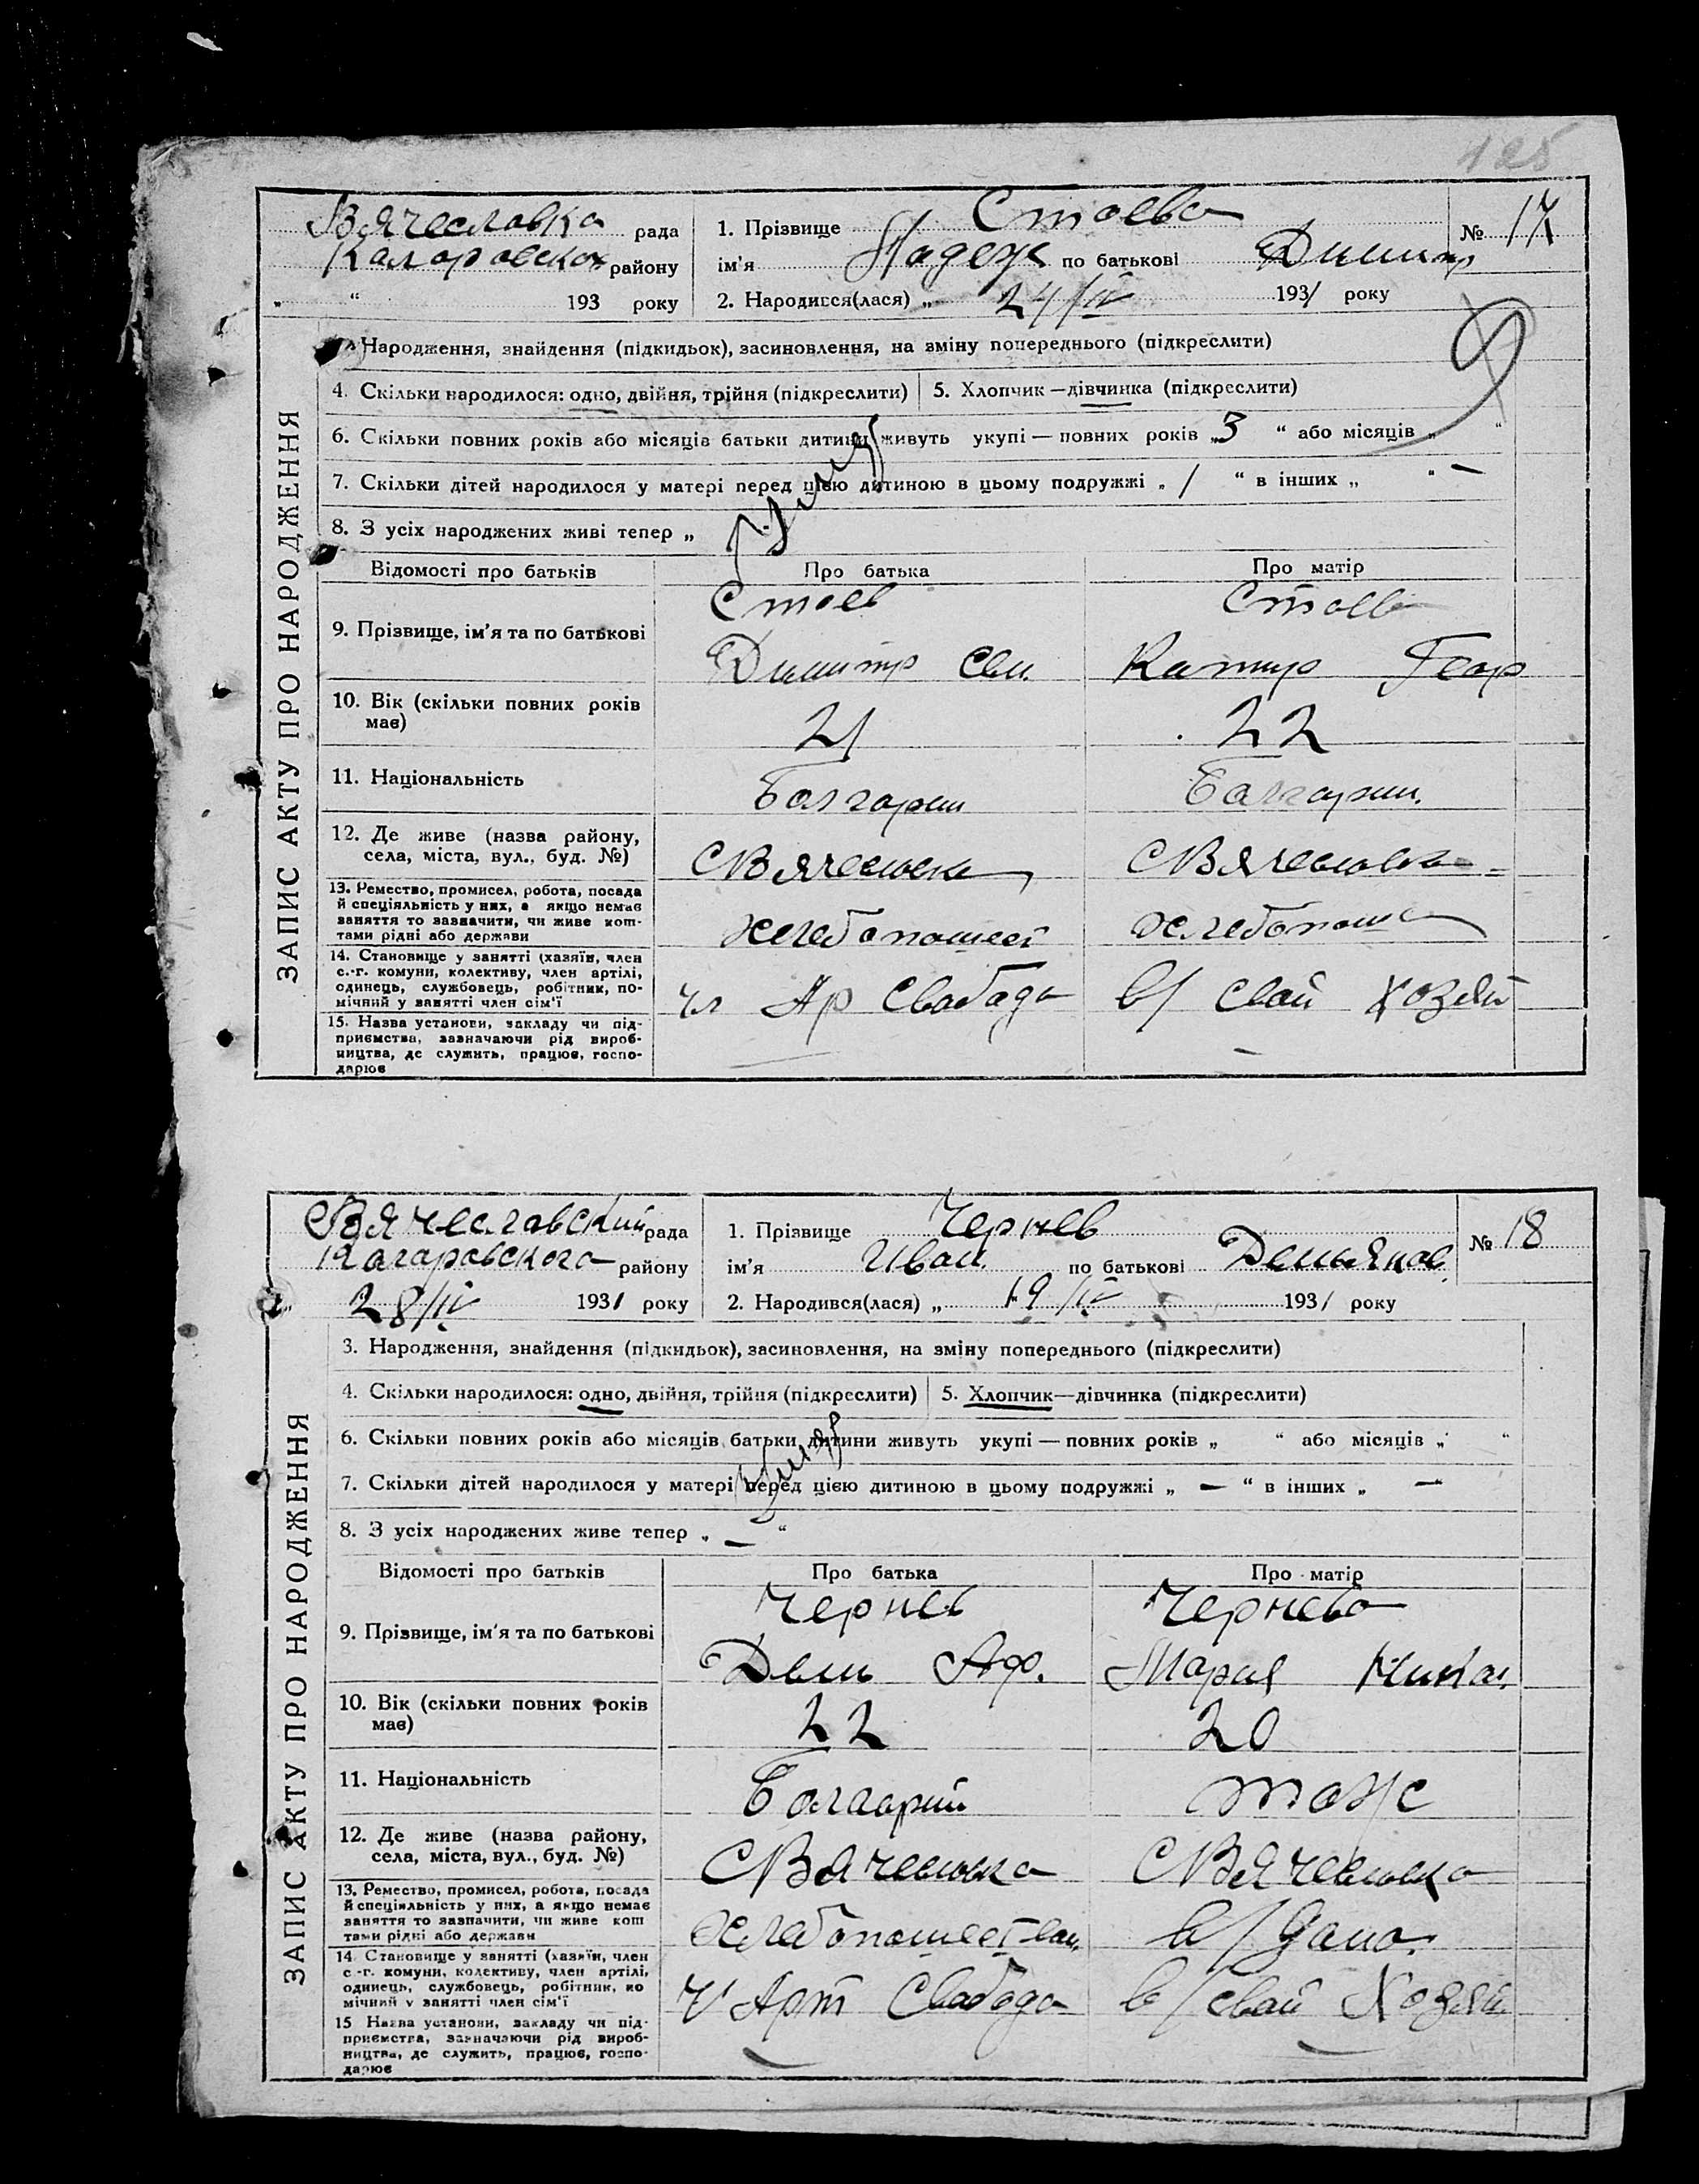 125
ЗАПИС АКТУ ПРО НАРОДЖЕННЯ
Вячеславка рада
Коларовског району
„ “ 193 року
1. Прізвище Стоева
ім'я Надеж по батькові Димитр
№ 17
2. Народився(лася) „ 24/IV 1931 року
Народження, знайдення (підкидьок), засиновлення, на зміну попереднього (підкреслити)
4. Скільки народилося: одно, двійня, трійня (підкреслити) 5. Хлопчик—дівчинка (підкреслити)
6. Скільки повних років або місяців батьки дитини живуть укупі — повних років „3 “ або місяців „ “
7. Скільки дітей народилося у матері перед цією дитиною в цьому подружжі „ 1 “ в інших „ “ —
8. З усіх народжених живі тепер „
Відомості про батьків Про батька Про матір
9. Прізвище, ім'я та по батькові
Стоев Стоев
Димитр Сем. Катир Геор
10. Вік (скільки повних років має)
21 22
11. Національність
Болгарин Балгарин.
12. Де живе (назва району, села, міста, вул., буд. №)
СВячеславка СВячеславка
13. Ремество, промисел, робота, посада й спеціяльність у них, а якщо немає заняття то зазначити, чи живе коштами рідні або держави
хлебопашест хлебопаше
14. Становище у занятті (хазяїн, член с.-г. комуни, колективу, член артілі, одинець, службовець, робітник, помічний у занятті член сім'ї
чл Ар Свабада в/ свай хозяй
15. Назва установи, закладу чи підприємства, зазначаючи рід виробництва, де служить, працює, господарює
ЗАПИС АКТУ ПРО НАРОДЖЕННЯ
СВячеславский рада
Каларовского району
„ 28/IV 1931 року
1. Прізвище Чернев
ім'я Иван. по батькові Демьянов.
№ 18
2. Народився(лася) „ 19/IV 1931 року
3. Народження, знайдення (підкидьок), засиновлення, на зміну попереднього (підкреслити)
4. Скільки народилося: одно, двійня, трійня (підкреслити) 5. Хлопчик—дівчинка (підкреслити)
6. Скільки повних років або місяців батьки дитини живуть укупі — повних років „ “ або місяців „ “
7. Скільки дітей народилося у матері перед цією дитиною в цьому подружжі „ — “ в інших „ —“
8. З усіх народжених живе тепер „ — “
Відомості про батьків Про батька Про матір
9. Прізвище, ім'я та по батькові
Чернев Чернева
Демь Аф. Мария Никол.
10. Вік (скільки повних років має)
22 20
11. Національність
Болгарин тоже
12. Де живе (назва району, села, міста, вул., буд. №)
СВячеславка СВячеславка
13. Ремество, промисел, робота, посада й спеціяльність у них, а якщо немає заняття то зазначити, чи живе кош тами рідні або держави
хлебопашест в/дома.
14. Становище у занятті (хазяїн, член с.-г. комуни, колективу, член артілі, одинець, службовець, робітник, по мічний у занятті член сім'ї
Ч Арт Свабода в/свай Хозяй
15 Назва установи, закладу чи підприємства, зазначаючи рід виробництва, де служить, працює, господарює